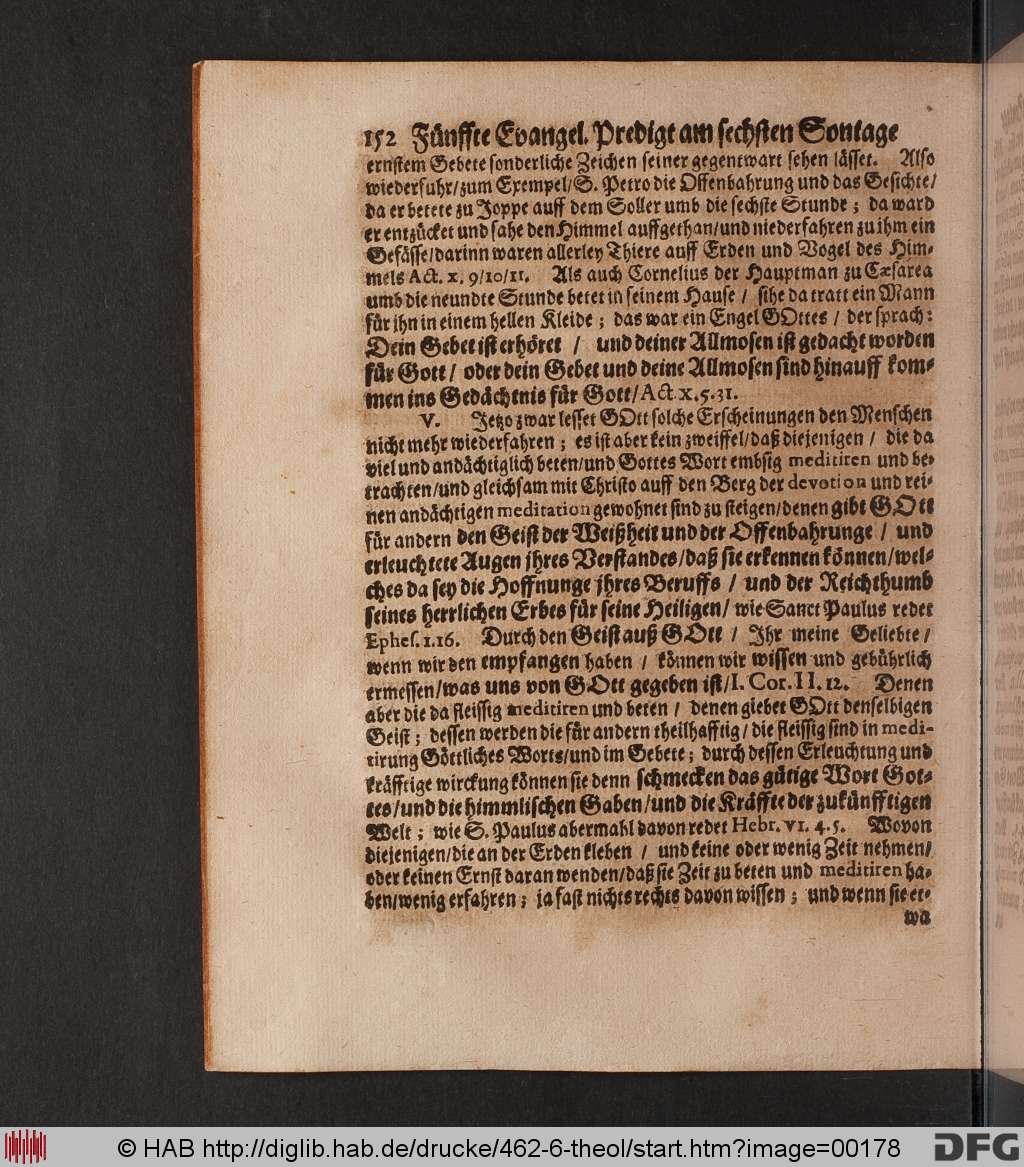 152 Fünffte Evangel. Predigt am sechsten Sontage
ernstem Gebete sonderliche Zeichen seiner gegentwart sehen lässet. Also
wiederfuhr/zum Exempel/S. Petro die Offenbahrung und das Gesichte/
da er betete zu Joppe auff dem Soller umb die sechste Stunde; da ward
er entzücket und sahe den Himmel auffgethan/und niederfahren zu ihm ein
Gefässe/darinn waren allerley Thiere auff Erden und Vogel des Him-
mels Act. x. 9/10/11. Als auch Cornelius der Hauptman zu Cæsarea
umb die neundte Stunde betet in seinem Hause / sihe da tratt ein Mann
für ihn in einem hellen Kleide; das war ein Engel GOttes / der sprach:
Dein Gebet ist erhöret / und deiner Allmosen ist gedacht worden
für Gott/ oder dein Gebet und deine Allmosen sind hinauff kom-
men ins Gedächtnis für Gott/Act. x. 5. 31.
V. Jetzo zwar lesset GOtt solche Erscheinungen den Menschen
nicht mehr wiederfahren; es ist aber kein zweiffel/daß diejenigen / die da
viel und andächtiglich beten/und Gottes Wort embsig meditiren und be-
trachten/und gleichsam mit Christo auff den Berg der devotion und rei-
nen andächtigen meditation gewohnet sind zu steigen/denen gibt GOtt
für andern den Geist der Weißheit und der Offenbahrunge / und
erleuchtete Augen jhres Verstandes/daß sie erkennen können/wel-
ches da sey die Hoffnunge jhres Beruffs / und der Reichthumb
seines herrlichen Erbes für seine Heiligen/ wie Sanct Paulus redet
Ephes. 1. 16. Durch den Geist auß GOtt / Ihr meine Geliebte/
wenn wir den empfangen haben / können wir wissen und gebührlich
ermessen/was uns von GOtt gegeben ist/I. Cor. II. 12. Denen
aber die da fleissig meditiren und beten / denen giebet GOtt denselbigen
Geist; dessen werden die für andern theilhafftig/die fleissig sind in medi-
tirung Göttliches Worts/und im Gebete; durch dessen Erleuchtung und
kräfftige wirckung können sie denn schmecken das gütige Wort Got-
tes/und die himmlischen Gaben/und die Kräffte der zukünfftigen
Welt; wie S. Paulus abermahl davon redet Hebr. VI. 4. 5. Wovon
diejenigen/die an der Erden kleben / und keine oder wenig Zeit nehmen/
oder keinen Ernst daran wenden/daß sie Zeit zu beten und meditiren ha-
ben/wenig erfahren; ja fast nichts rechts davon wissen; und wenn sie et-
wa
© HAB http://diglib.hab.de/drucke/462-6-theol/start.htm?image=00178
DFG